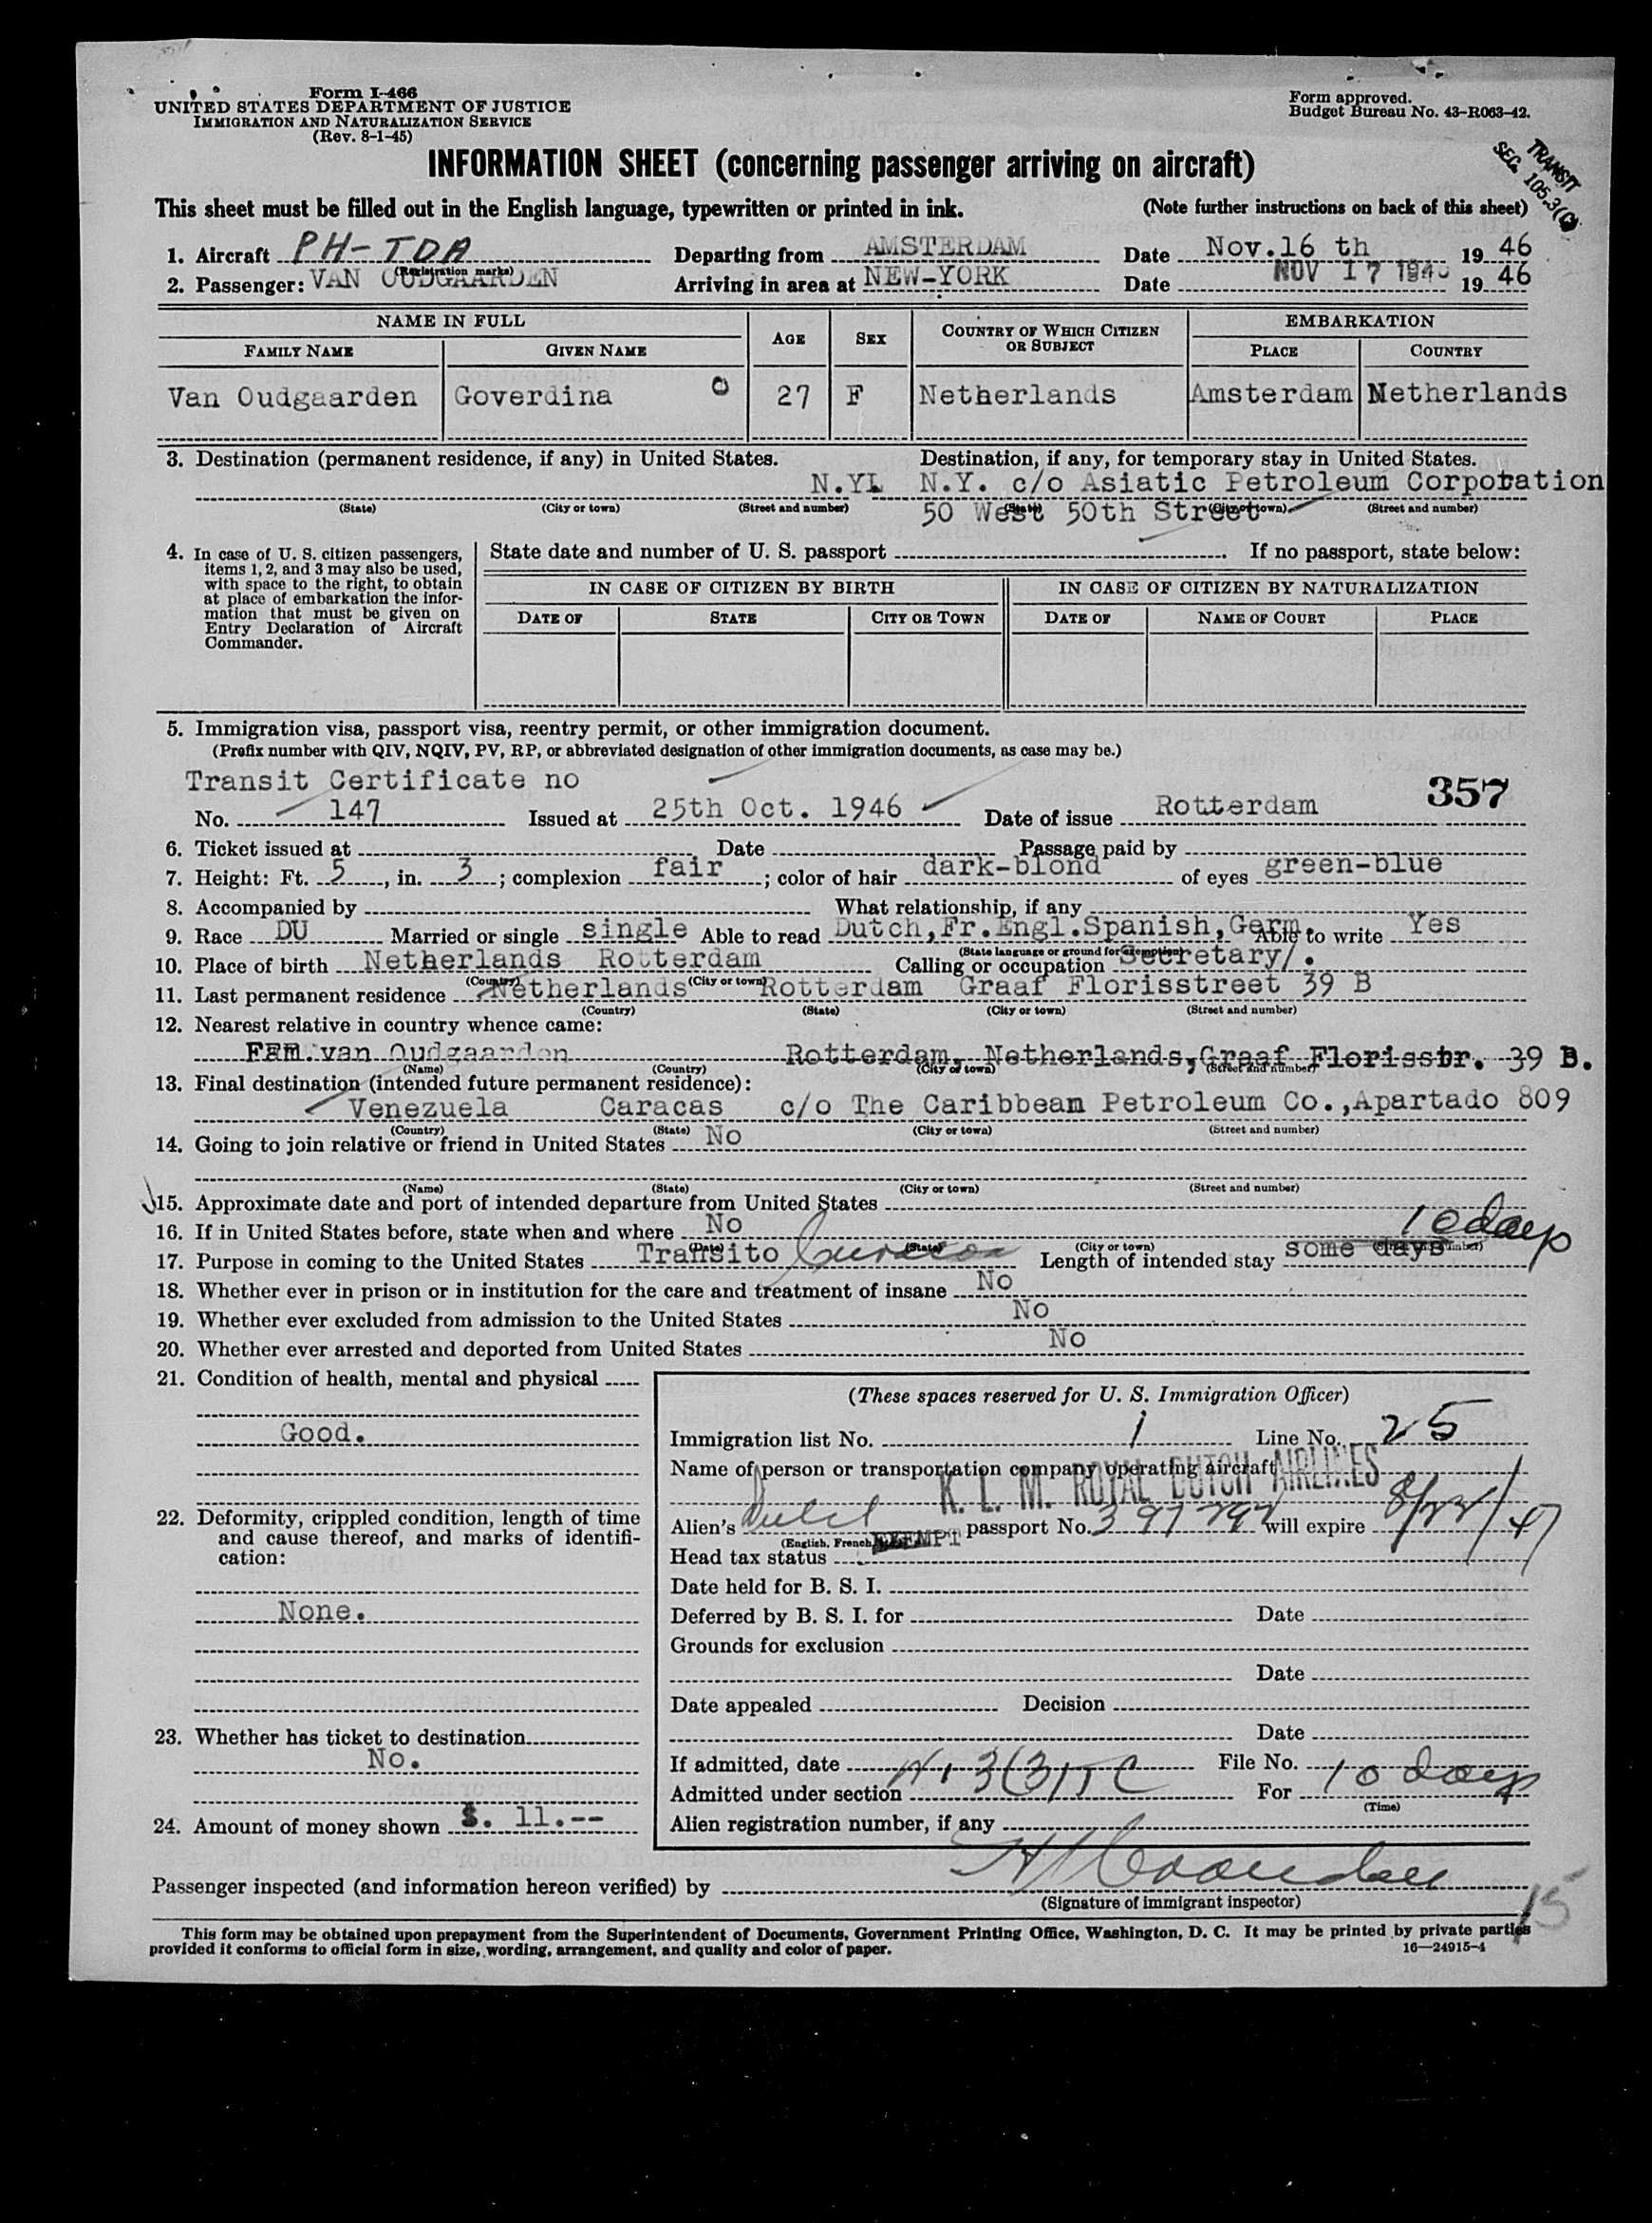 Form I-466
UNITED STATES DEPARTMENT OF JUSTICE
IMMIGRATION AND NATURALIZATION SERVICE
(Rev. 8-1-45)
Form approved.
Budget Bureau No. 43-R063-42.
TRANSIT
SEC. 105.3(C)
INFORMATION SHEET (concerning passenger arriving on aircraft)
This sheet must be filled out in the English language, typewritten or printed in ink. (Note further instructions on back of this sheet)
1. Aircraft PH-TDA Departing from AMSTERDAM Date Nov.16 th 19 46
(Registration marks)
2. Passenger: VAN OUDGAARDEN Arriving in area at NEW-YORK Date NOV 17 1946 19 46
NAME IN FULL AGE SEX COUNTRY OF WHICH CITIZEN OR SUBJECT EMBARKATION
FAMILY NAME GIVEN NAME PLACE COUNTRY
Van Oudgaarden Goverdina 27 F Netherlands Amsterdam Netherlands
3. Destination (permanent residence, if any) in United States. Destination, if any, for temporary stay in United States.
N.Y. N.Y. c/o Asiatic Petroleum Corporation
(State) (City or town) (Street and number) (State) (City or town) (Street and number)
50 West 50th Street
4. In case of U. S. citizen passengers, items 1, 2, and 3 may also be used, with space to the right, to obtain at place of embarkation the information that must be given on Entry Declaration of Aircraft Commander.
State date and number of U. S. passport If no passport, state below:
IN CASE OF CITIZEN BY BIRTH IN CASE OF CITIZEN BY NATURALIZATION
DATE OF STATE CITY OR TOWN DATE OF NAME OF COURT PLACE
5. Immigration visa, passport visa, reentry permit, or other immigration document.
(Prefix number with QIV, NQIV, PV, RP, or abbreviated designation of other immigration documents, as case may be.)
Transit Certificate no 357
No. 147 Issued at 25th Oct. 1946 Date of issue Rotterdam
6. Ticket issued at Date Passage paid by
7. Height: Ft. 5, in. 3; complexion fair; color of hair dark-blond of eyes green-blue
8. Accompanied by What relationship, if any
9. Race DU Married or single single Able to read Dutch,Fr.Engl.Spanish,Germ. Able to write Yes
(State language or ground for exemption)
10. Place of birth Netherlands Rotterdam Calling or occupation Secretary/.
(Country) (City or town)
11. Last permanent residence Netherlands Rotterdam Graaf Florisstreet 39 B
(Country) (State) (City or town) (Street and number)
12. Nearest relative in country whence came:
FAM. van Oudgaarden Rotterdam, Netherlands,Graaf Florisstr. 39 B.
(Name) (Country) (City or town) (Street and number)
13. Final destination (intended future permanent residence):
Venezuela Caracas c/o The Caribbean Petroleum Co.,Apartado 809
(Country) (State) (City or town) (Street and number)
14. Going to join relative or friend in United States No
(Name) (State) (City or town) (Street and number)
15. Approximate date and port of intended departure from United States
16. If in United States before, state when and where No 10 days
(Date) (State) (City or town) (Street and number)
17. Purpose in coming to the United States Transito Curacao Length of intended stay some days
18. Whether ever in prison or in institution for the care and treatment of insane No
19. Whether ever excluded from admission to the United States No
20. Whether ever arrested and deported from United States No
21. Condition of health, mental and physical
Good.
22. Deformity, crippled condition, length of time and cause thereof, and marks of identification:
None.
23. Whether has ticket to destination
No.
24. Amount of money shown $. 11.--
(These spaces reserved for U. S. Immigration Officer)
Immigration list No. 1 Line No. 25
Name of person or transportation company operating aircraft
K. L. M. ROYAL DUTCH AIRLINES
Alien's Dutch passport No. 397797 will expire 8/22/47
Head tax status EXEMPT
Date held for B. S. I.
Deferred by B. S. I. for Date
Grounds for exclusion
Date
Date appealed Decision
Date
If admitted, date File No.
Admitted under section 3(3) TC For 10 days
(Time)
Alien registration number, if any
Passenger inspected (and information hereon verified) by
(Signature of immigrant inspector)
15
This form may be obtained upon prepayment from the Superintendent of Documents, Government Printing Office, Washington, D. C. It may be printed by private parties
provided it conforms to official form in size, wording, arrangement, and quality and color of paper. 16—24915-4